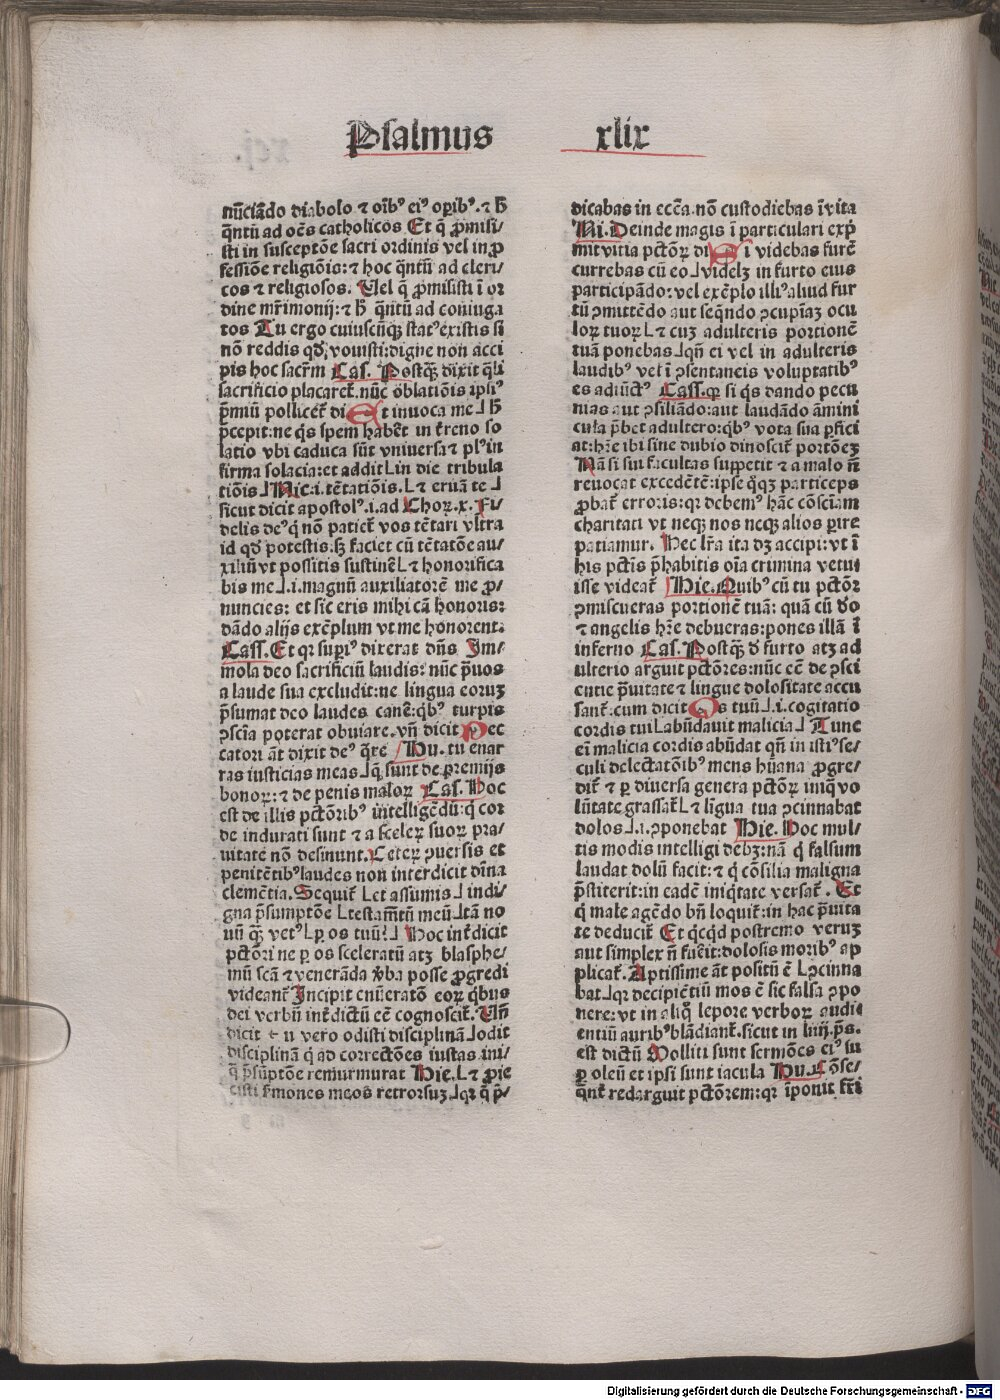 Psalmus xlix
nūciādo diabolo ⁊ oībꝰ eiꝰ oꝑibꝰ. ⁊ ħ
q̄ntū ad oēs catholicos Et q̄ ꝓmisi/
sti in susceptōe sacri ordinis vel in ꝓ
fessiōe religiōis: ⁊ hoc q̄ntū ad cleri/
cos ⁊ religiosos. Uel q̄ ꝓmisisti ī or
dine mr̄imonij: ⁊ ħ q̄ntū ad coniuga
tos Tu ergo cuiuscūqꝫ statꝰ existis si
nō reddis qď vouisti: digne non acci
pis hoc sacr̄m Cas. Postqꝫ dixit q̄li
sacrificio placaret̄. nūc oblatiōis ipsiꝰ
p̄miū pollicet̄ di Et inuoca me⅃ ħ
p̄cepit: ne q̄s spem habēt in t̄reno so
latio vbi caduca sūt vniuersa ⁊ plꝰ in
firma solacia: et addit L in die tribula
tiōis⅃ Nic. i. tētatiōis. L ⁊ eruā te⅃
sicut dicit apostolꝰ. i. ad Choꝝ. x. Fi/
delis deꝰ q̄ nō patiet̄ vos tētari vltra
id qď potestis: sꝫ faciet cū tētatōe au/
xiliū vt possitis sustinē L ⁊ honorifica
bis me⅃. i. magnū auxiliatorē me ꝓ/
nuncies: et sic eris mihi cā honoris:
dādo alijs exēplum vt me honorent.
Cass. Et qꝛ supiꝰ dixerat dn̄s Im/
mola deo sacrificiū laudis: nūc p̄uos
a laude sua excludit: ne lingua eoruꝫ
p̄sumat deo laudes canē: q̄bꝰ turpis
ꝯscīa poterat obuiare. vn̄ dicit Pec
catori āt dixit deꝰ q̄re Hu. tu enar
ras iusticias meas⅃ q̄ sunt de premijs
bonoꝝ: ⁊ de penis maloꝝ Cas. Hoc
est de illis pctōribꝰ intelligēdū: q̄ cor
de indurati sunt ⁊ a sceleꝝ suoꝝ pra/
uitate nō desinunt. Ceteꝝ ꝯuersis et
penitētibꝰ laudes non interdicit diīna
clemētia. Sequit̄ L et assumis⅃ indi/
gna p̄sumptōe L testam̄tū meū⅃ tā no
uū qꝫ vetꝰ L ꝑ os tuū:⅃ Hoc int̄dicit
pctōri ne ꝑ os sceleratū atꝫ blasphe/
mū scā ⁊ venerāda v̄ba posse ꝓgredi
videant̄ Incipit enūeratō eoꝝ q̄bus
dei verbū int̄dictū eē cognoscit̄. Un̄
dicit Tu vero odisti disciplinā⅃ odit
disciplinā q̄ ad correctōes iustas ini/
q̄ p̄sūptōe remurmurat Hie. L ⁊ ꝓie
cisti s̄mones meos retrorsuꝫ⅃ qꝛ q̄ p̄/
dicabas in ecc̄a. nō custodiebas ī vita
Ni. Deinde magis ī particulari exp̄
mit vitia pctōꝝ di Si videbas furē
currebas cū eo⅃ videlꝫ in furto eius
participādo: vel exēplo illiꝰ aliud fur
tū ꝯmittēdo aut seqn̄do ꝯcupīaꝫ ocu
loꝝ tuoꝝ L ⁊ cuꝫ adulteris portionē
tuā ponebas⅃ qn̄ ei vel in adulteris
laudibꝰ vel ī ꝓsentaneis voluptatibꝰ
es adiūctꝰ Cass. qꝛ si q̄s dando pecu
nias aut ꝯsiliādo: aut laudādo āmini
cula p̄bet adultero: q̄bꝰ vota sua ꝑfici
at: hr̄e ibi sine dubio dinoscit̄ portōeꝫ
Nā si sui facultas suppetit ⁊ a malo n̄
reuocat excedētē: ipse q̄qꝫ particeps
ꝓbat̄ erroris: qꝛ debemꝰ hāc cōsciam
charitati vt neqꝫ nos neqꝫ alios ꝑire
patiamur. Hec lr̄a ita dꝫ accipi: vt ī
his pctīs p̄habitis oīa crimina vetu
isse videat̄ Hie. Quibꝰ cū tu pctōꝝ
ꝯmiscueras portionē tuā: quā cū do
⁊ angelis hr̄e debueras: pones illā ī
inferno Cas. Postqꝫ ď furto atꝫ ad
ulterio arguit pctōres: nūc eē de ꝯsci
entie p̄uitate ⁊ lingue dolositate accu
sant̄. cum dicit Os tuū⅃. i. cogitatio
cordis tui L abūdauit malicia⅃ Tunc
ei malicia cordis abūdat qn̄ in istiꝰ se/
culi delectatōibꝰ mens hūana ꝓgre/
dit̄ ⁊ ꝑ diuersa genera pctōꝝ iniqꝰ vo
lūtate grassat̄ L ⁊ līgua tua ꝯcinnabat
dolos⅃. i. ꝯponebat Hie. Hoc mul/
tis modis intelligi debꝫ: nā q̄ falsum
laudat dolū facit: ⁊ q̄ cōsilia maligna
p̄stiterit: in eadē iniq̄tate versat̄. Et
q̄ male agēdo bn̄ loquit̄: in hac p̄uita
te deducit̄ Et q̄cq̄d postremo veruꝫ
aut simplex n̄ facit: dolosis moribꝰ ap
plicat̄. Aptissime āt positū ē L ꝯcinna
bat⅃ qꝛ decipiētiū mos ē sic falsa ꝯpo
nere: vt in aliq̄ lepore verboꝝ audi
entiū auribꝰ blādiant̄. sicut in liiij. ps.
est dictū Molliti sunt sermōes eiꝰ su
ꝑ oleū et ipsi sunt iacula Hu. Cōse/
q̄nt̄ redarguit pctōrem: qꝛ īponit fr̄i
Digitalisierung gefördert durch die Deutsche Forschungsgemeinschaft - DFG